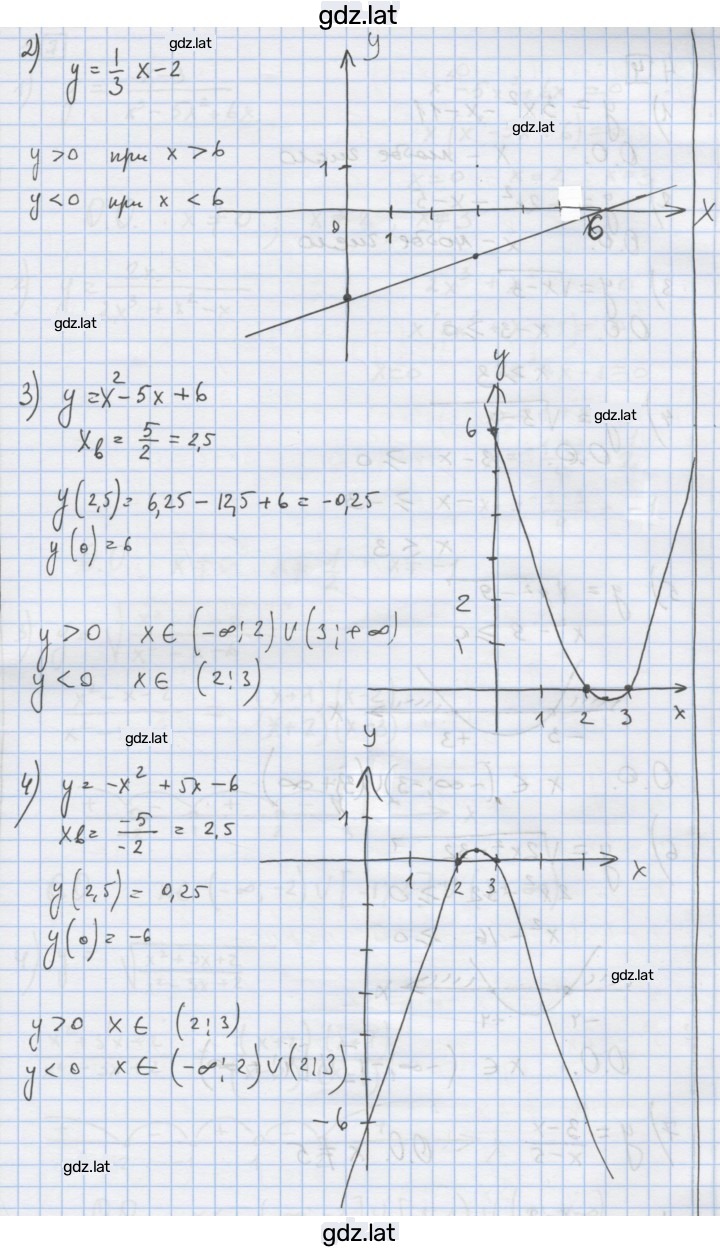 gdz.lat
2) y = 1/3 x - 2
gdz.lat
y
y > 0 при x > 6
gdz.lat
1
y < 0 при x < 6
0 1 6 x
gdz.lat
3) y = x² - 5x + 6
x_в = 5/2 = 2,5
y(2,5) = 6,25 - 12,5 + 6 = -0,25
y(0) = 6
y
gdz.lat
6
2
1
1 2 3 x
y > 0 x ∈ (-∞; 2) ∪ (3; +∞)
y < 0 x ∈ (2; 3)
gdz.lat
4) y = -x² + 5x - 6
x_в = -5/-2 = 2,5
y(2,5) = 0,25
y(0) = -6
y
1
1 2 3 x
gdz.lat
-6
y > 0 x ∈ (2; 3)
y < 0 x ∈ (-∞; 2) ∪ (2; 3)
gdz.lat
gdz.lat